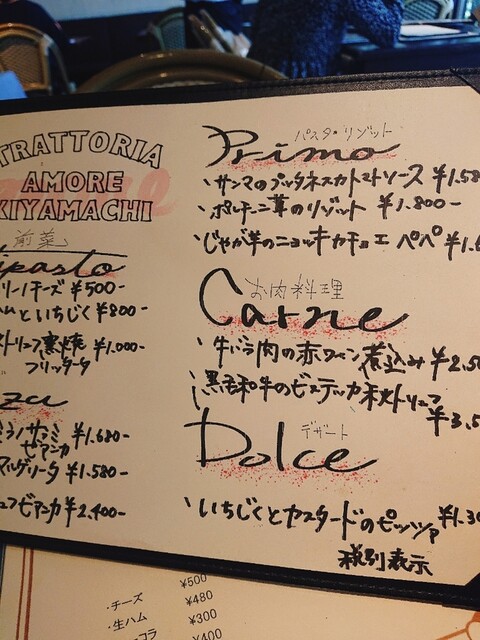 TRATTORIA
AMORE
KIYAMACHI
前菜
チーズ ¥500-
ハムといちじく ¥800-
トリュフ裏焼 ¥1.000-
フリッタータ
サラミ ¥1.680-
ビアンカ
マルゲリータ ¥1.580-
ビアンカ ¥2.400-
パスタ・リゾット
Primo
、サンマのプッタネスカトマトソース ¥1.58
、ポルチーニ茸のリゾット ¥1.800-
、じゃが芋のニョッキカチョエペペ ¥1.6
お肉料理
Carne
、牛バラ肉の赤ワイン煮込み ¥2.50
、黒毛和牛のビステッカ秋トリュフ
¥3.5
デザート
Dolce
、いちじくとカスタードのピッツァ ¥1.30
税別表示
¥500
・チーズ ¥480
・生ハム ¥300
コラ ¥400